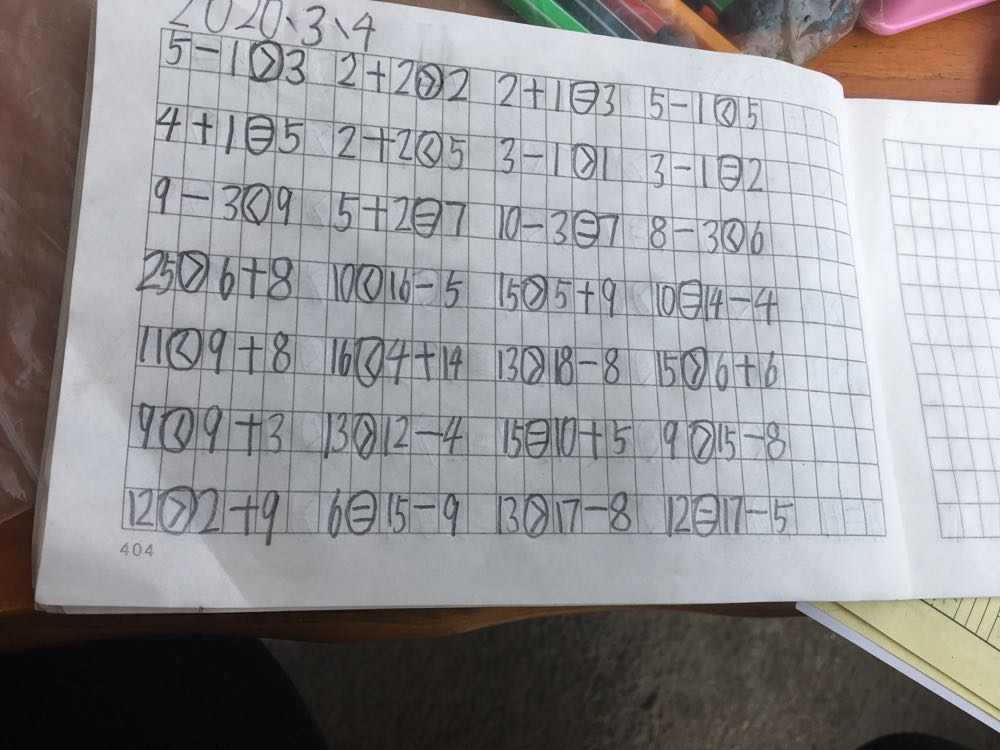 2020、3、4
5-1>3 2+2>2 2+1=3 5-1<5
4+1=5 2+2<5 3-1>1 3-1=2
9-3<9 5+2=7 10-3=7 8-3<6
25>6+8 10<16-5 15>5+9 10=14-4
11<9+8 16<4+14 13>18-8 15>6+6
9<9+3 13>12-4 15=10+5 9>15-8
12>2+9 6=15-9 13>17-8 12=17-5
404